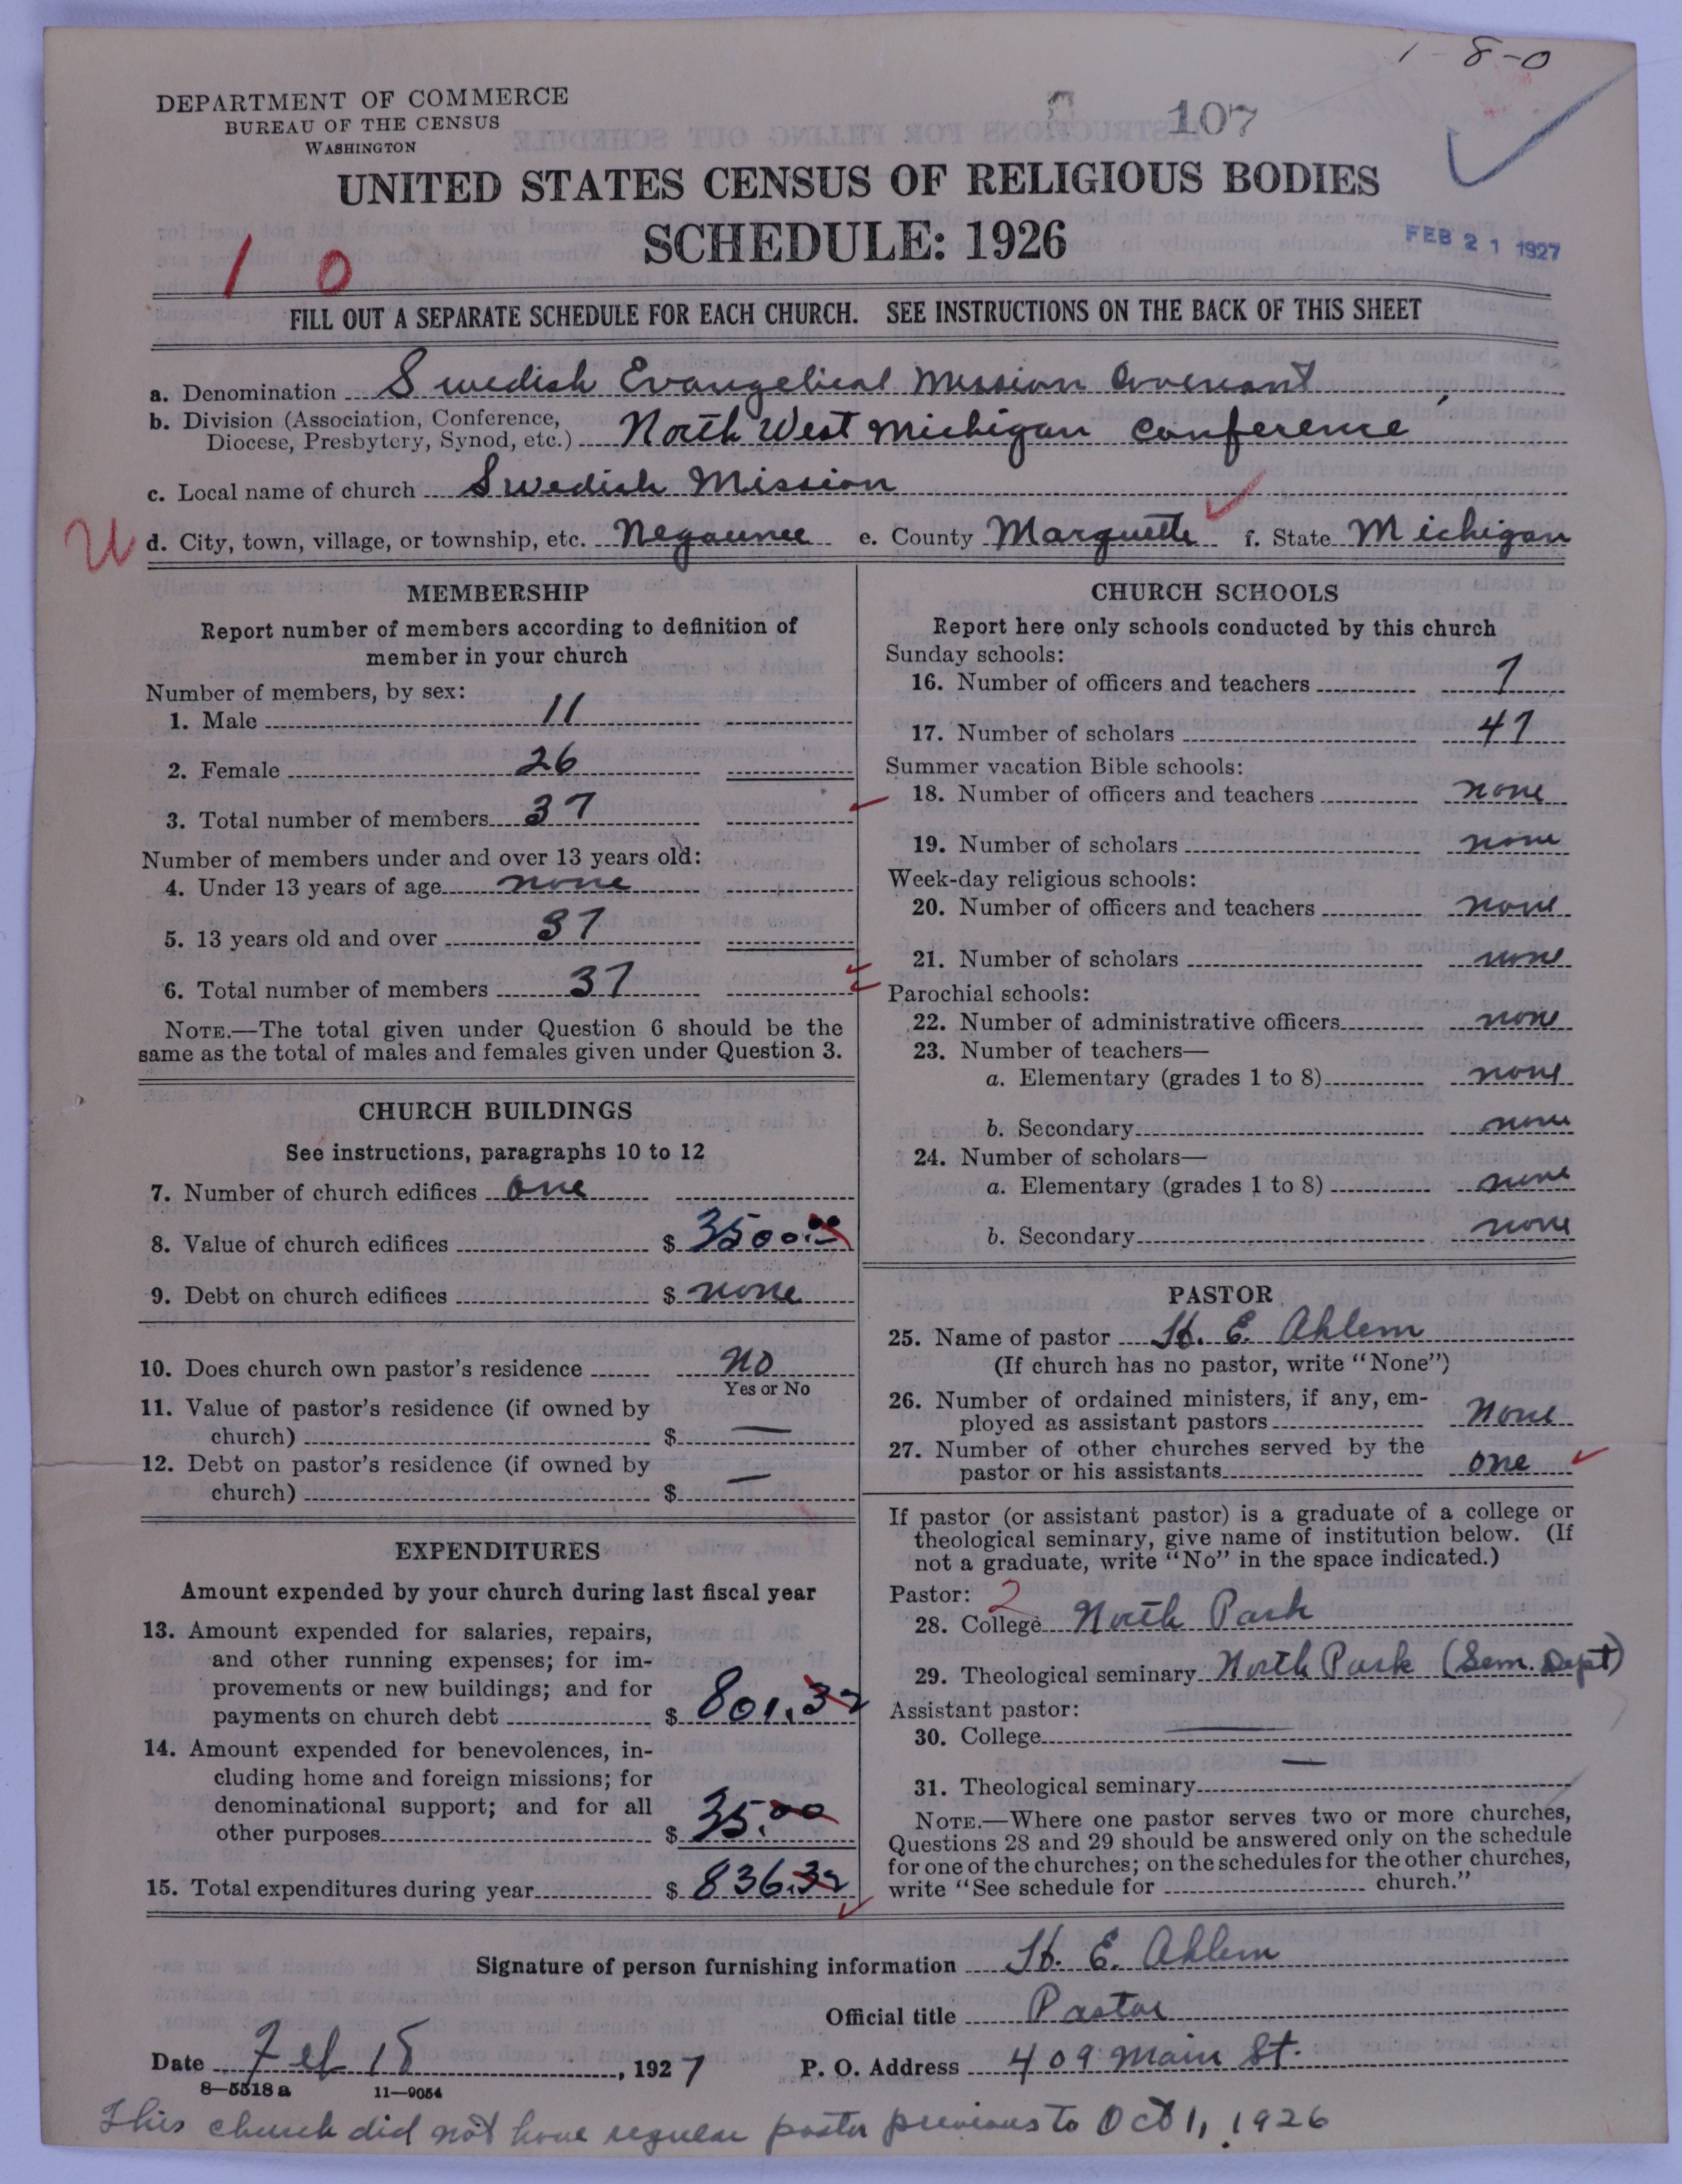 1-8-0
DEPARTMENT OF COMMERCE
BUREAU OF THE CENSUS
WASHINGTON
107
UNITED STATES CENSUS OF RELIGIOUS BODIES
SCHEDULE: 1926
FEB 21 1927
1 0
FILL OUT A SEPARATE SCHEDULE FOR EACH CHURCH. SEE INSTRUCTIONS ON THE BACK OF THIS SHEET
a. Denomination Swedish Evangelical Mission Covenant
b. Division (Association, Conference,
Diocese, Presbytery, Synod, etc.) North West Michigan Conference
c. Local name of church Swedish Mission
U d. City, town, village, or township, etc. Negaunee e. County Marquette f. State Michigan
MEMBERSHIP
Report number of members according to definition of
member in your church
Number of members, by sex:
1. Male 11
2. Female 26
3. Total number of members 37
Number of members under and over 13 years old:
4. Under 13 years of age none
5. 13 years old and over 37
6. Total number of members 37
NOTE.—The total given under Question 6 should be the
same as the total of males and females given under Question 3.
CHURCH BUILDINGS
See instructions, paragraphs 10 to 12
7. Number of church edifices one
8. Value of church edifices $ 3500.00
9. Debt on church edifices $ none
10. Does church own pastor's residence no
Yes or No
11. Value of pastor's residence (if owned by
church) $ —
12. Debt on pastor's residence (if owned by
church) $ —
EXPENDITURES
Amount expended by your church during last fiscal year
13. Amount expended for salaries, repairs,
and other running expenses; for im-
provements or new buildings; and for
payments on church debt $ 801.32
14. Amount expended for benevolences, in-
cluding home and foreign missions; for
denominational support; and for all
other purposes $ 35.00
15. Total expenditures during year $ 836.32
CHURCH SCHOOLS
Report here only schools conducted by this church
Sunday schools:
16. Number of officers and teachers 7
17. Number of scholars 47
Summer vacation Bible schools:
18. Number of officers and teachers none
19. Number of scholars none
Week-day religious schools:
20. Number of officers and teachers none
21. Number of scholars none
Parochial schools:
22. Number of administrative officers none
23. Number of teachers—
a. Elementary (grades 1 to 8) none
b. Secondary none
24. Number of scholars—
a. Elementary (grades 1 to 8) none
b. Secondary none
PASTOR
25. Name of pastor H. E. Ahlem
(If church has no pastor, write "None")
26. Number of ordained ministers, if any, em-
ployed as assistant pastors None
27. Number of other churches served by the
pastor or his assistants one
If pastor (or assistant pastor) is a graduate of a college or
theological seminary, give name of institution below. (If
not a graduate, write "No" in the space indicated.)
Pastor: 2
28. College North Park
29. Theological seminary North Park (Sem. Dept)
Assistant pastor:
30. College —
31. Theological seminary —
NOTE.—Where one pastor serves two or more churches,
Questions 28 and 29 should be answered only on the schedule
for one of the churches; on the schedules for the other churches,
write "See schedule for church."
Signature of person furnishing information H. E. Ahlem
Official title Pastor
Date Feb 18, 1927 P. O. Address 409 Main St.
8—5518a 11—9054
This church did not have regular pastor previous to Oct 1, 1926